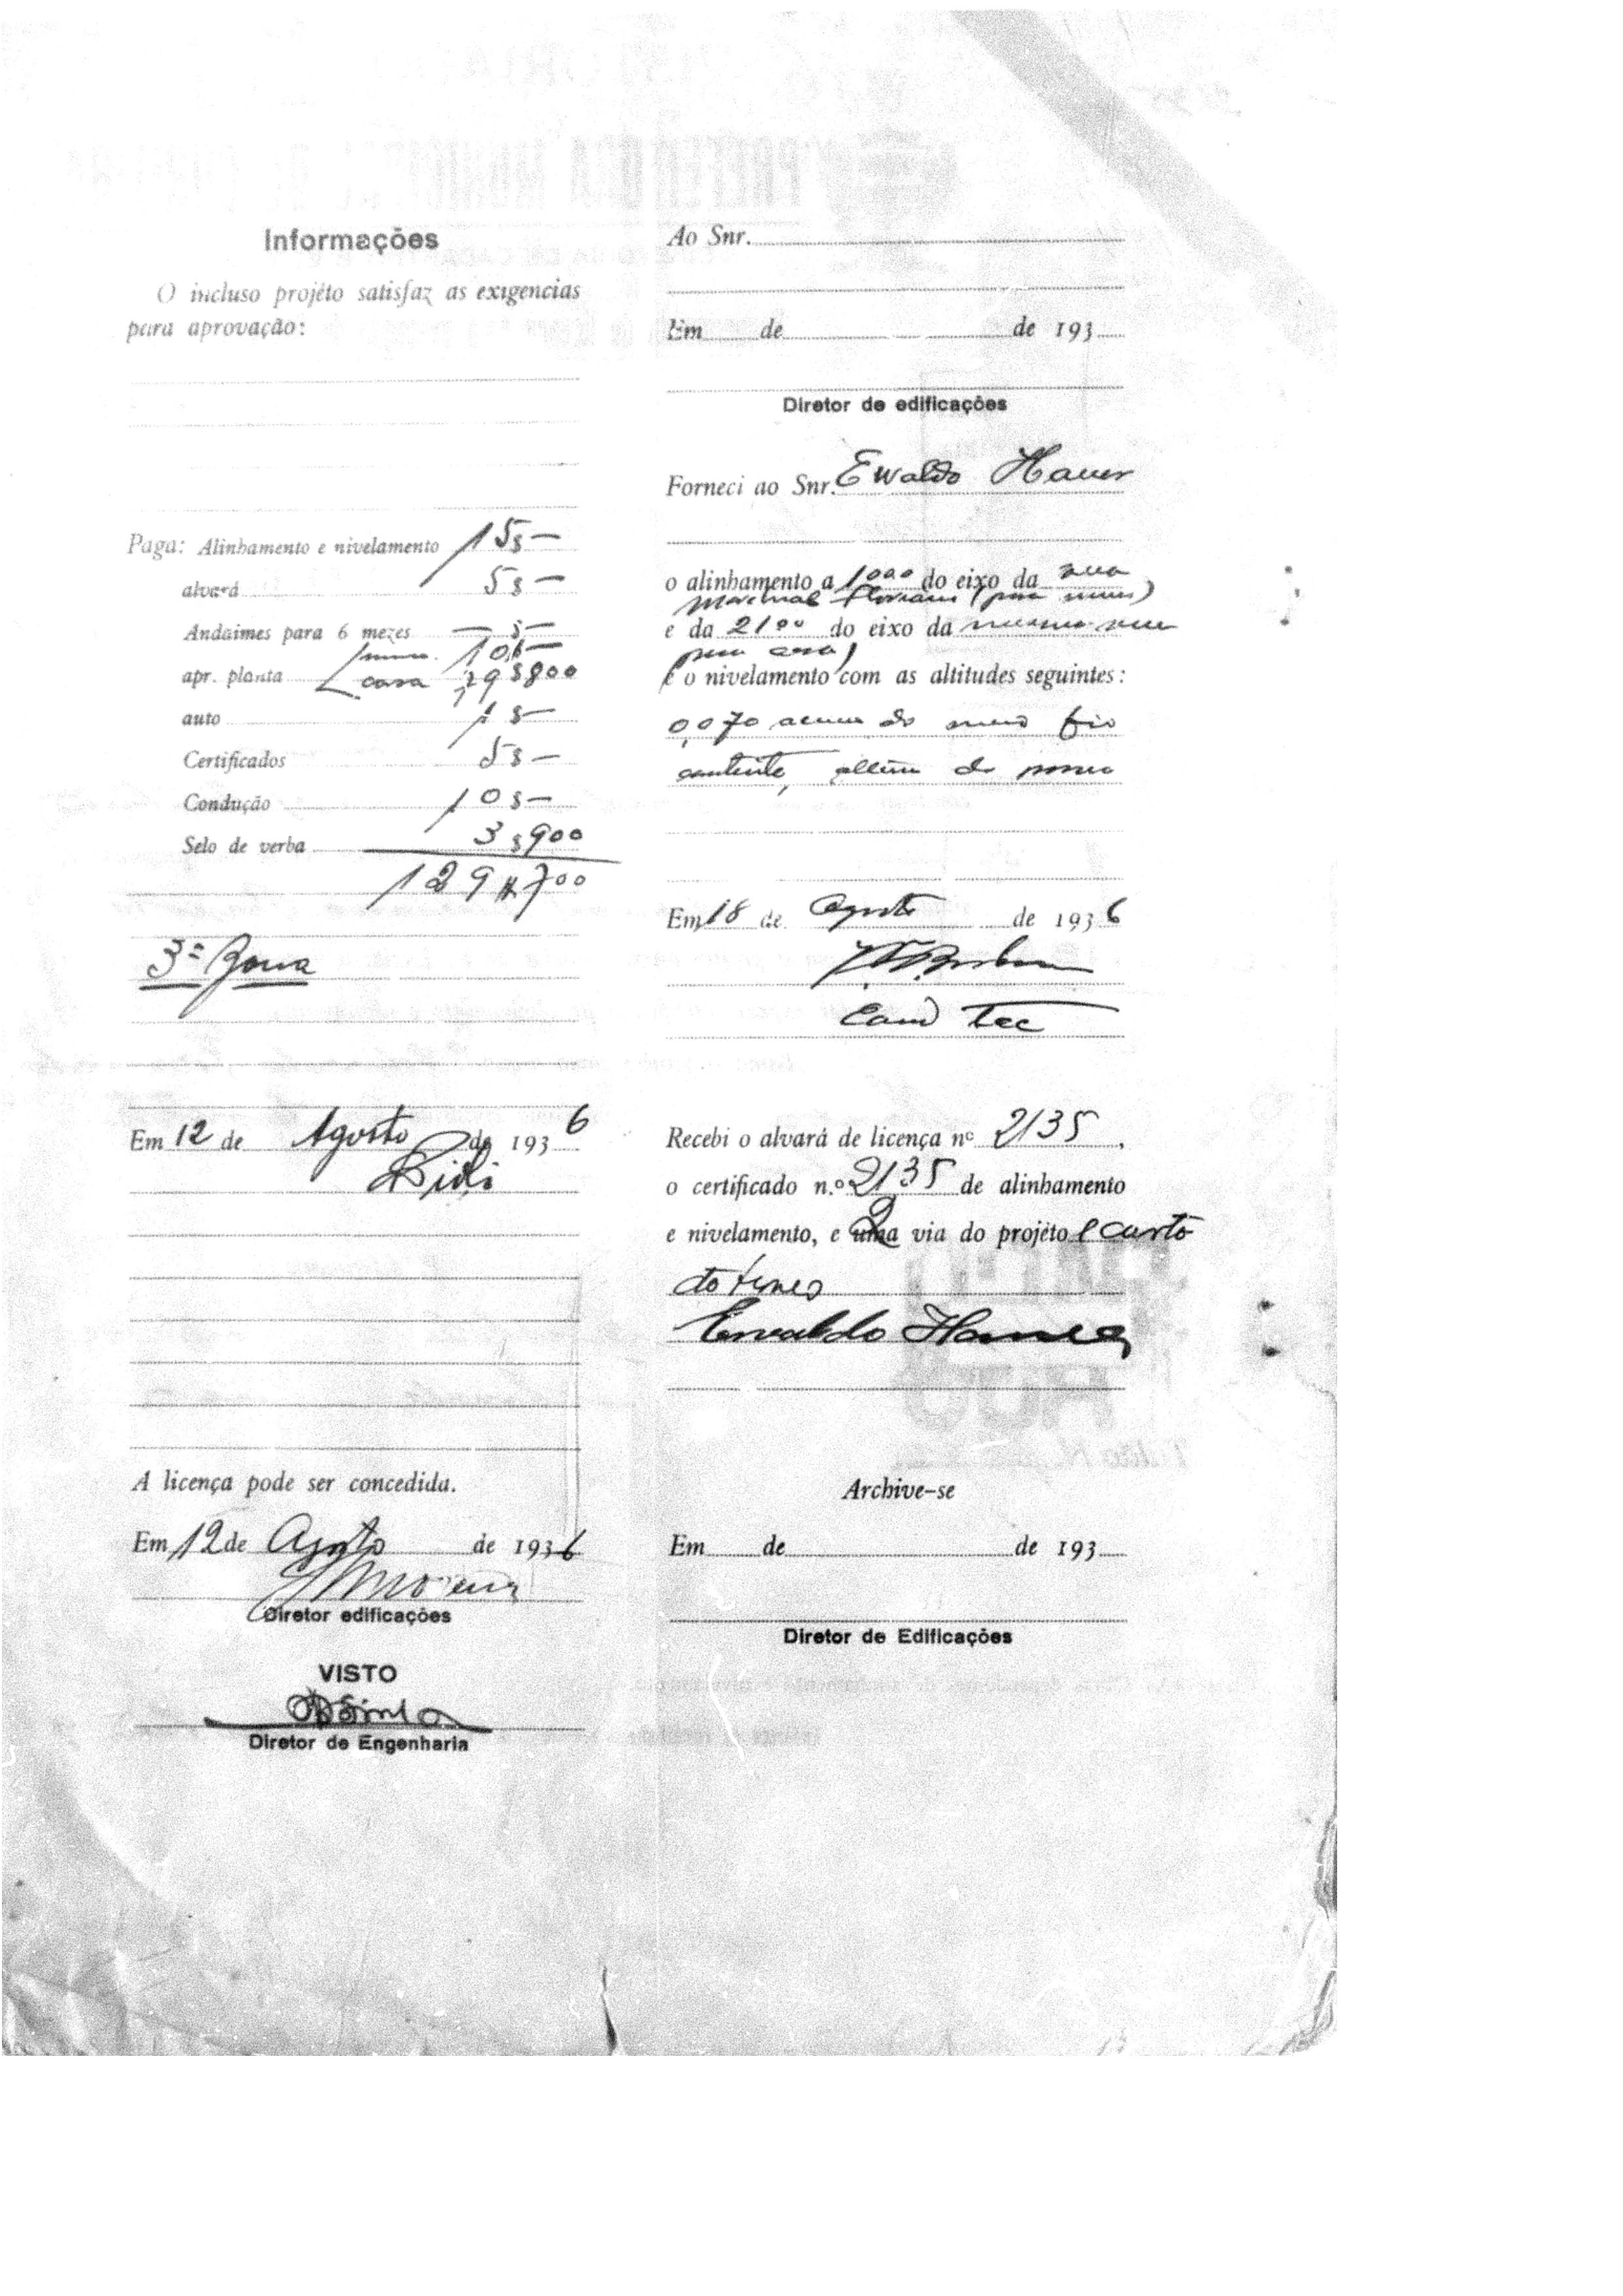 Informações
O incluso projéto satisfaz as exigencias
para aprovação:
Paga: Alinhamento e nivelamento 15$—
alvará 5$—
Andaimes para 6 mezes —$—
muro. 10$—
apr. planta casa 79$800
auto 1$—
Certificados 5$—
Condução 10$—
Selo de verba 3$900
129$700
3ª Zona
Em 12 de Agosto de 1936
A licença pode ser concedida.
Em 12 de Agosto de 1936
Diretor edificações
VISTO
Diretor de Engenharia
Ao Snr.
Em de de 193
Diretor de edificações
Forneci ao Snr. Ewaldo Hauer
o alinhamento a 10,00 do eixo da rua
Marechal Floriano (para muro)
e da 21,00 do eixo da mesma rua
para casa)
e o nivelamento com as altitudes seguintes:
0,070 acima do meio fio
Em 18 de Agosto de 1936
Cand Tec
Recebi o alvará de licença nº 2135,
o certificado n.º 2135 de alinhamento
e nivelamento, e 2 uma via do projéto e
Ewaldo Hauer
Archive-se
Em de de 193
Diretor de Edificações